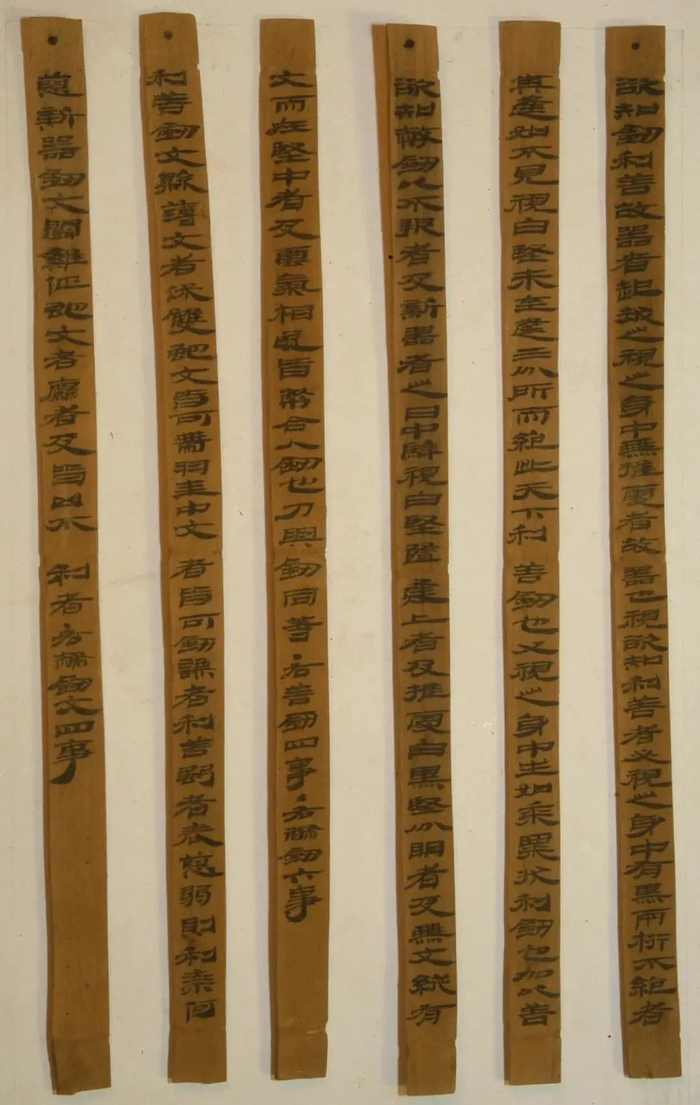 欲知劍利善故器者起拔之視之身中無推處者故器也視欲知利善者必視之身中有黑兩桁不絕者
其逢如不見視白堅未至逢三分所而絕此天下利善劍也又視之身中生如黍粟狀利劍也加以善
欲知敝劍以不報者及新器者之日中騂視白堅隨逢上者及推處白黑堅分明者及無文縱有
文而在堅中者及雲氣相遂皆幣合人劍也刀與劍同等・右善劍四事・右幣劍六事
利善劍文縣薄文者保雙蛇文皆可帶羽圭中文者皆可劍謙者利善強者表恙弱則利奈何
恙新器劍文鬥雞佂蛇文者粗者及皆凶不利者・右幣劍文四事